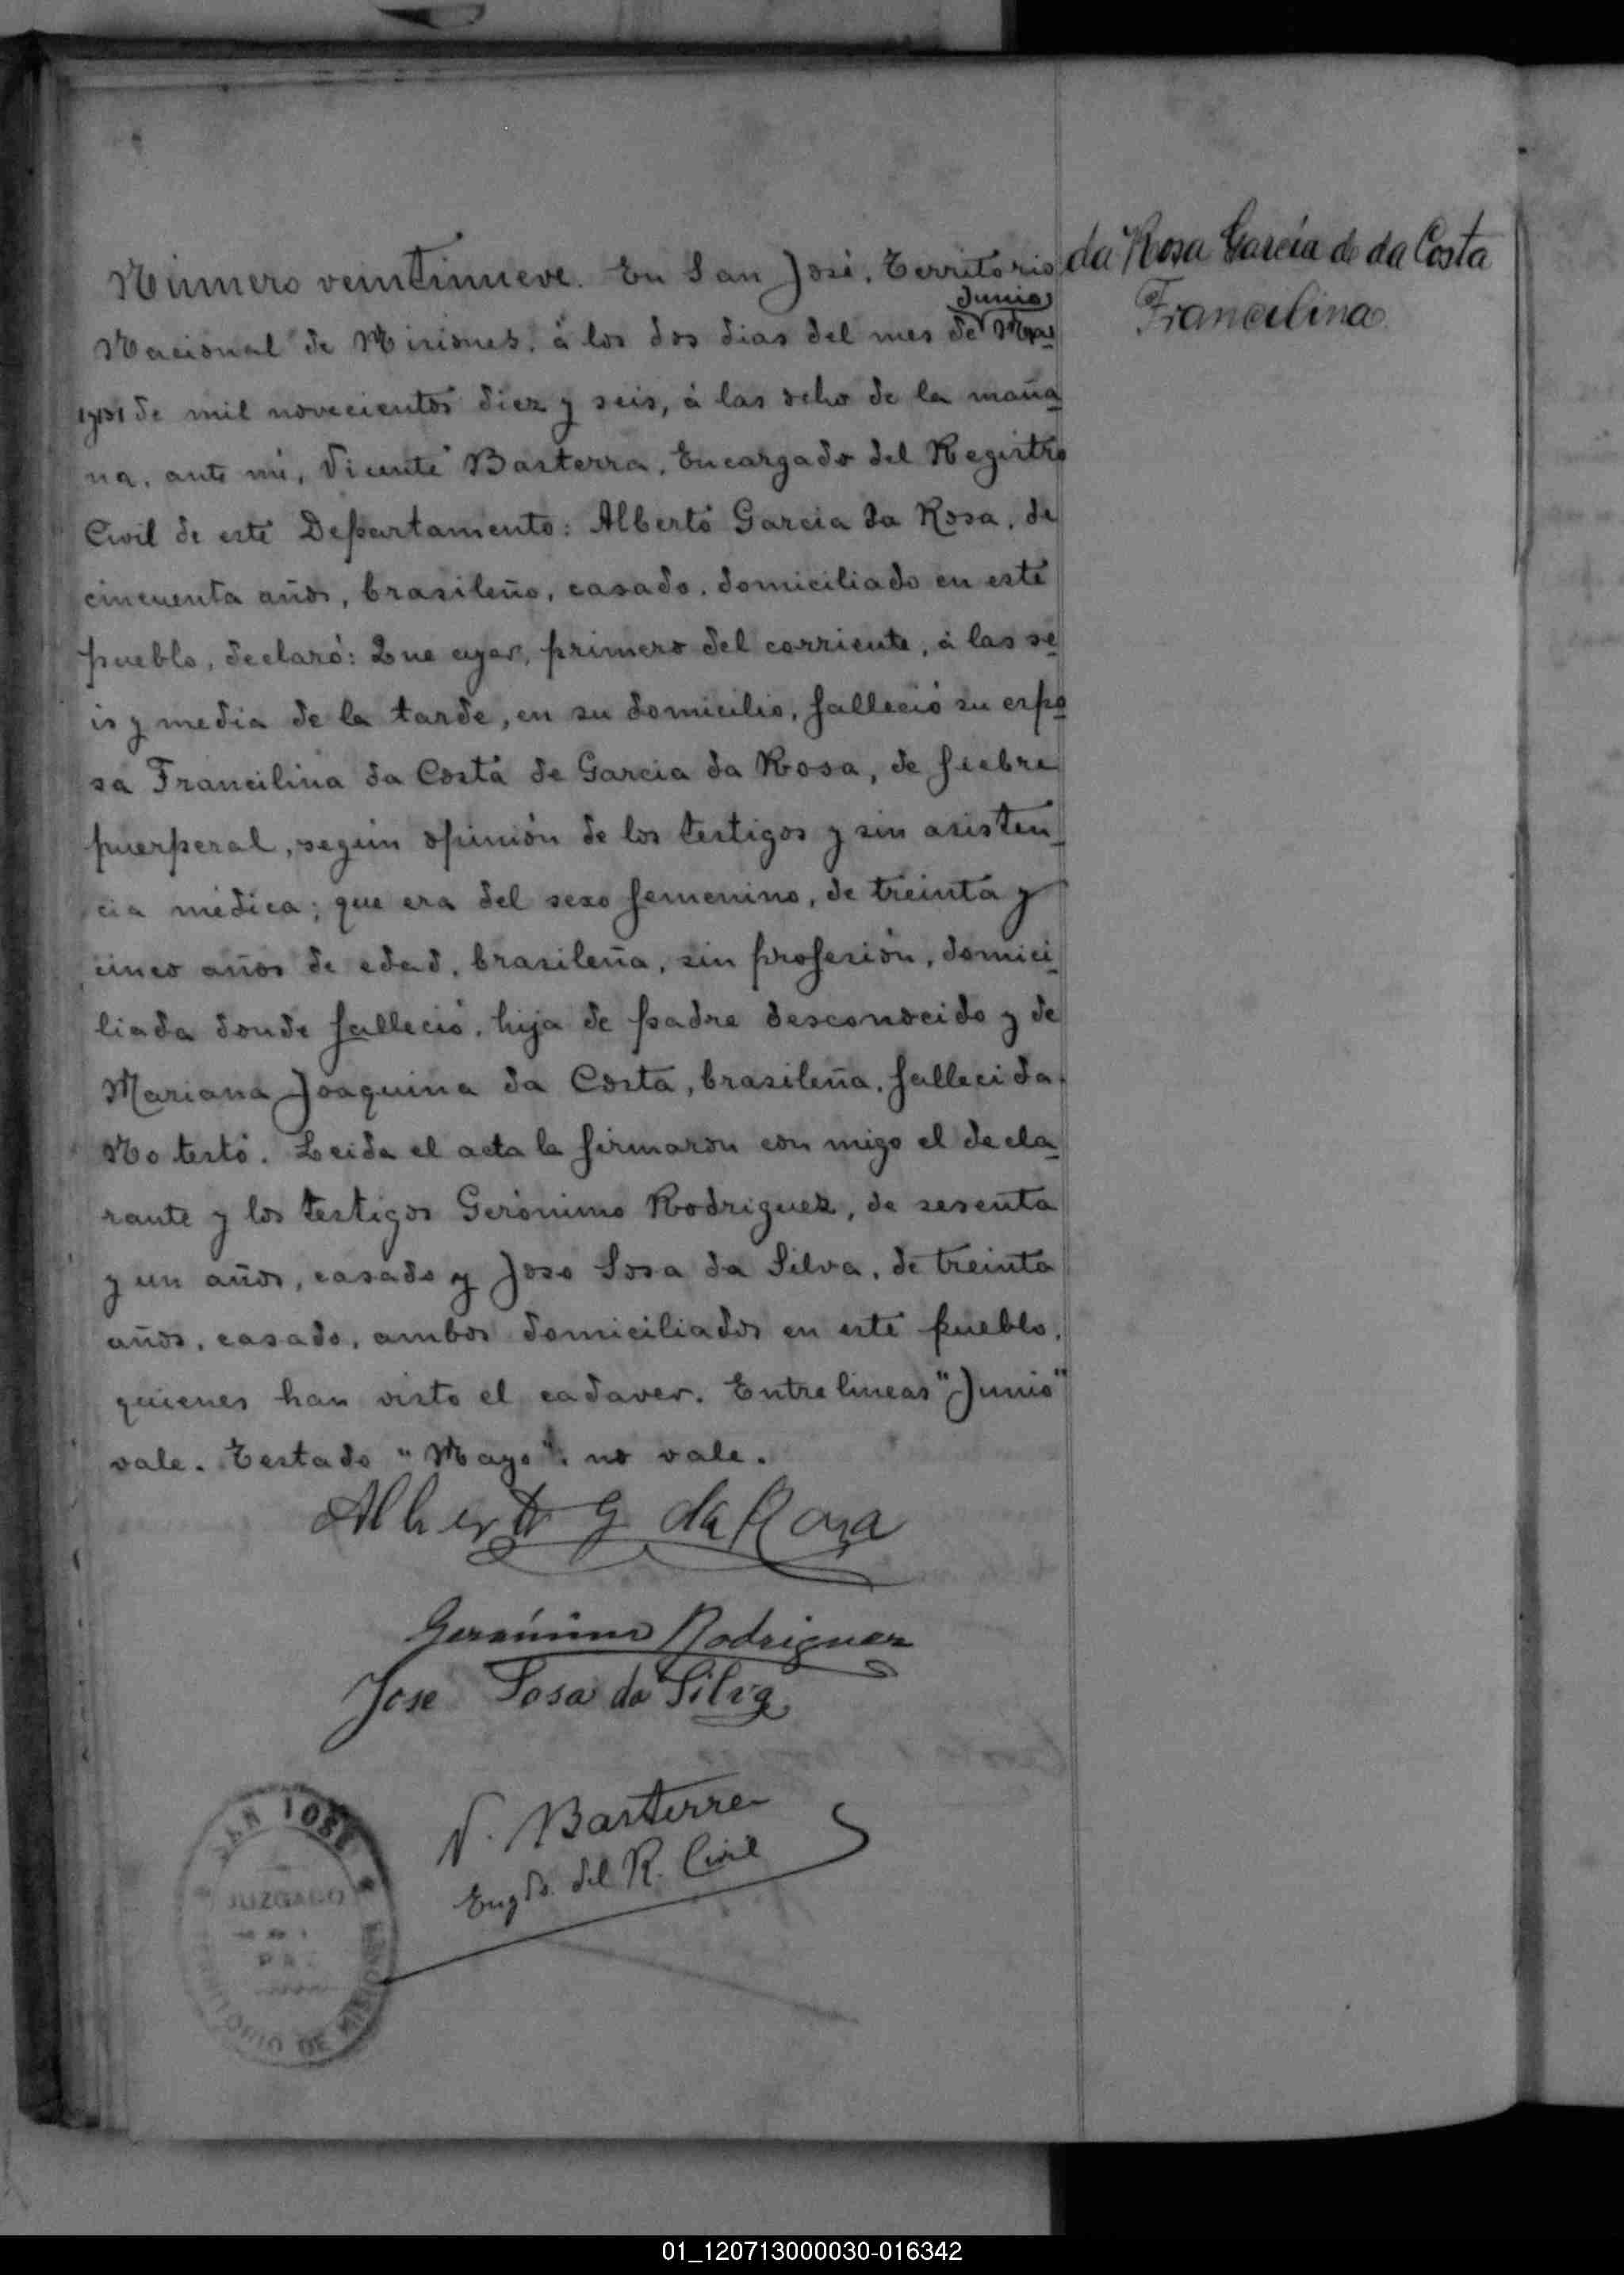 da Rosa Garcia de da Costa
Francilina
Número veintinueve. En San José, Territorio
Junio
Nacional de Misiones, á los dos dias del mes de Ma
yo de mil novecientos diez y seis, á las ocho de la maña
na, ante mi, Vicente Basterra, Encargado del Registro
Civil de este Departamento: Alberto Garcia da Rosa, de
cincuenta años, brasileño, casado, domiciliado en este
pueblo, declaró: Que ayer, primero del corriente, á las se
is y media de la tarde, en su domicilio, falleció su espo
sa Francilina da Costa de Garcia da Rosa, de fiebre
puerperal, según opinión de los testigos y sin asisten
cia médica; que era del sexo femenino, de treinta y
cinco años de edad, brasileña, sin profesión, domici
liada donde falleció, hija de padre desconocido y de
Mariana Joaquina da Costa, brasileña, fallecida.
No testó. Leida el acta la firmaron con migo el decla
rante y los testigos Gerónimo Rodriguez, de sesenta
y un años, casado y Jose Sosa da Silva, de treinta
años, casado, ambos domiciliados en este pueblo,
quienes han visto el cadaver. Entre lineas "Junio"
vale. Testado "Mayo": no vale.
Alberto G da Rosa
Gerónimo Rodriguez
Jose Sosa da Silva
V. Basterra
Engdo. del R. Civil
SAN JOSE
JUZGADO
DE
PAZ
TERRITORIO DE MISIONES
01_120713000030-016342